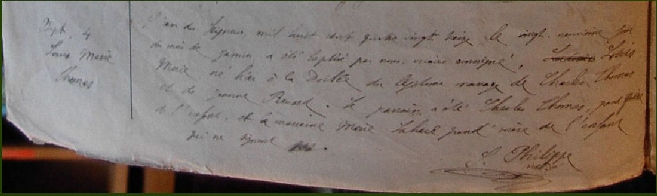 Bapt. 4
Louis Marie
Thomas
L'an du Seigneur mil huit cent quatre vingt seize le vingt neuvième jour
du mois de janvier a été baptisé par moi, vicaire soussigné, Louis
Marie né hier à la Dorlée du légitime mariage de Charles Thomas
et de Jeanne Renard. Le parrain a été Charles Thomas, grand père
de l'enfant, et la marraine Marie grand'mère de l'enfant
qui ne signent pas.
Philippe